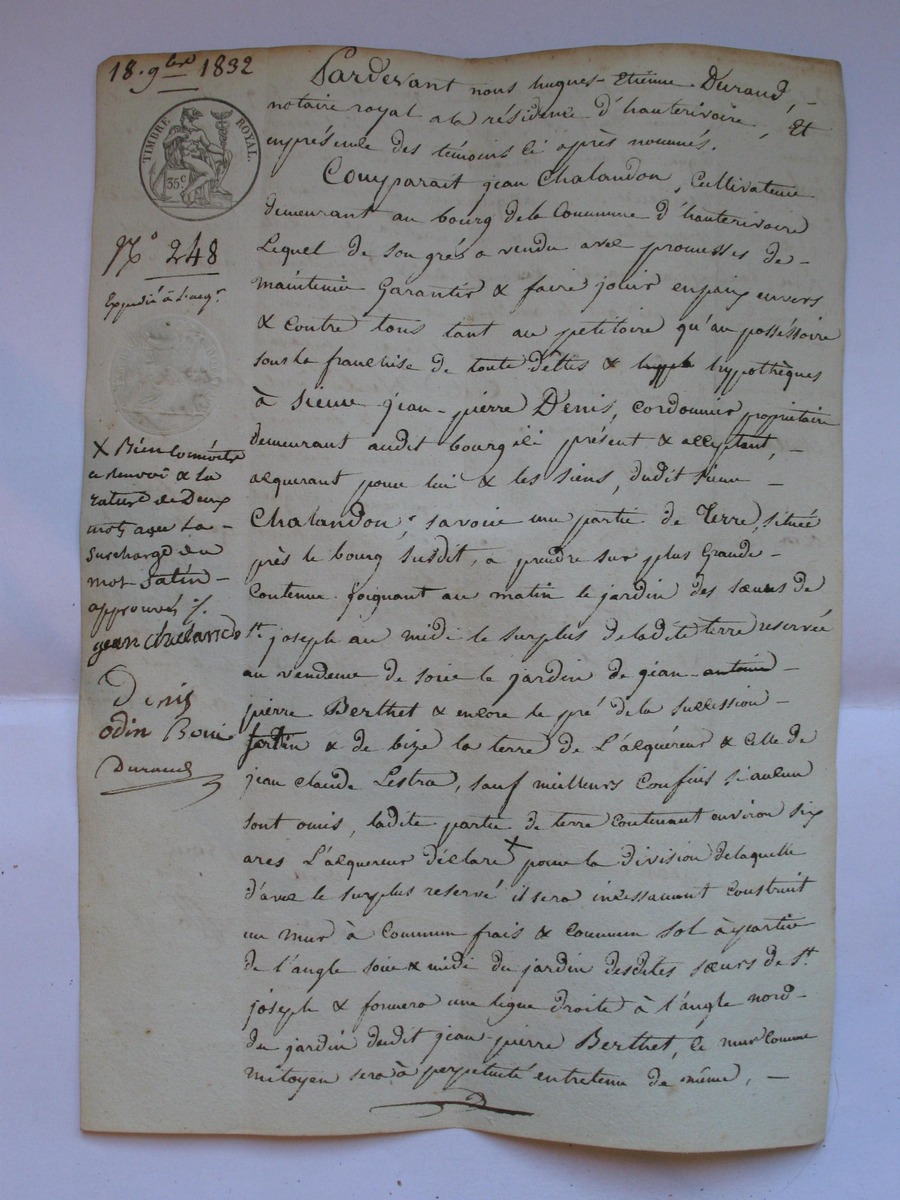 18. 9bre 1832
TIMBRE ROYAL.
35 c
N° 248
Expédié à l'acqr
X Bien connoitre
ce renvoi & la
rature de Deux
mots avec la
surcharge du
mot Satin
approuvés ./.
jean chalandon
Denis
odin
Durand
Pardevant nous hugues Etienne Durand,
notaire royal a la résidence d'hauterivoire, Et
en présence des témoins ci après nommés.
Comparait jean Chalandon, Cultivateur
demeurant au bourg de la Commune d'hauterivoire
Lequel de son grés a vendu avec promesses de
maintenir Garantir & faire jouir en paix envers
& contre tous tant au petitoire qu'au posséssoire
sous la franchise de toute dettes & hypothèques
à Sieur jean-pierre Denis, cordonnier propriétaire
demeurant audit bourg ici présent & acceptant,
acquerant pour lui & les siens, dudit sieur
Chalandon, savoir une partie de Terre, située
près le bourg susdit, a prendre sur plus Grande
Contenue joignant au matin le jardin des sœurs de
St. joseph au midi le surplus de ladite terre reservée
au vendeur de soir le jardin de jean antoine
pierre Berthet & encore le pré de la succession
& de bize la terre de L'acquéreur & celle de
jean claude Lestra, sauf meilleurs Confins si aucun
sont omis, ladite partie de terre contenant environ six
ares L'acquereur déclare X pour la division delaquelle
d'avec le surplus reservé il sera incessamment construit
un mur à Commun frais & Commun sol à partir
de l'angle soir & midi du jardin desdites sœurs de St.
joseph & formera une ligne droite à l'angle nord
du jardin dudit jean-pierre Berthet, ce mur comme
mitoyen sera à perpetuité entretenu de même,